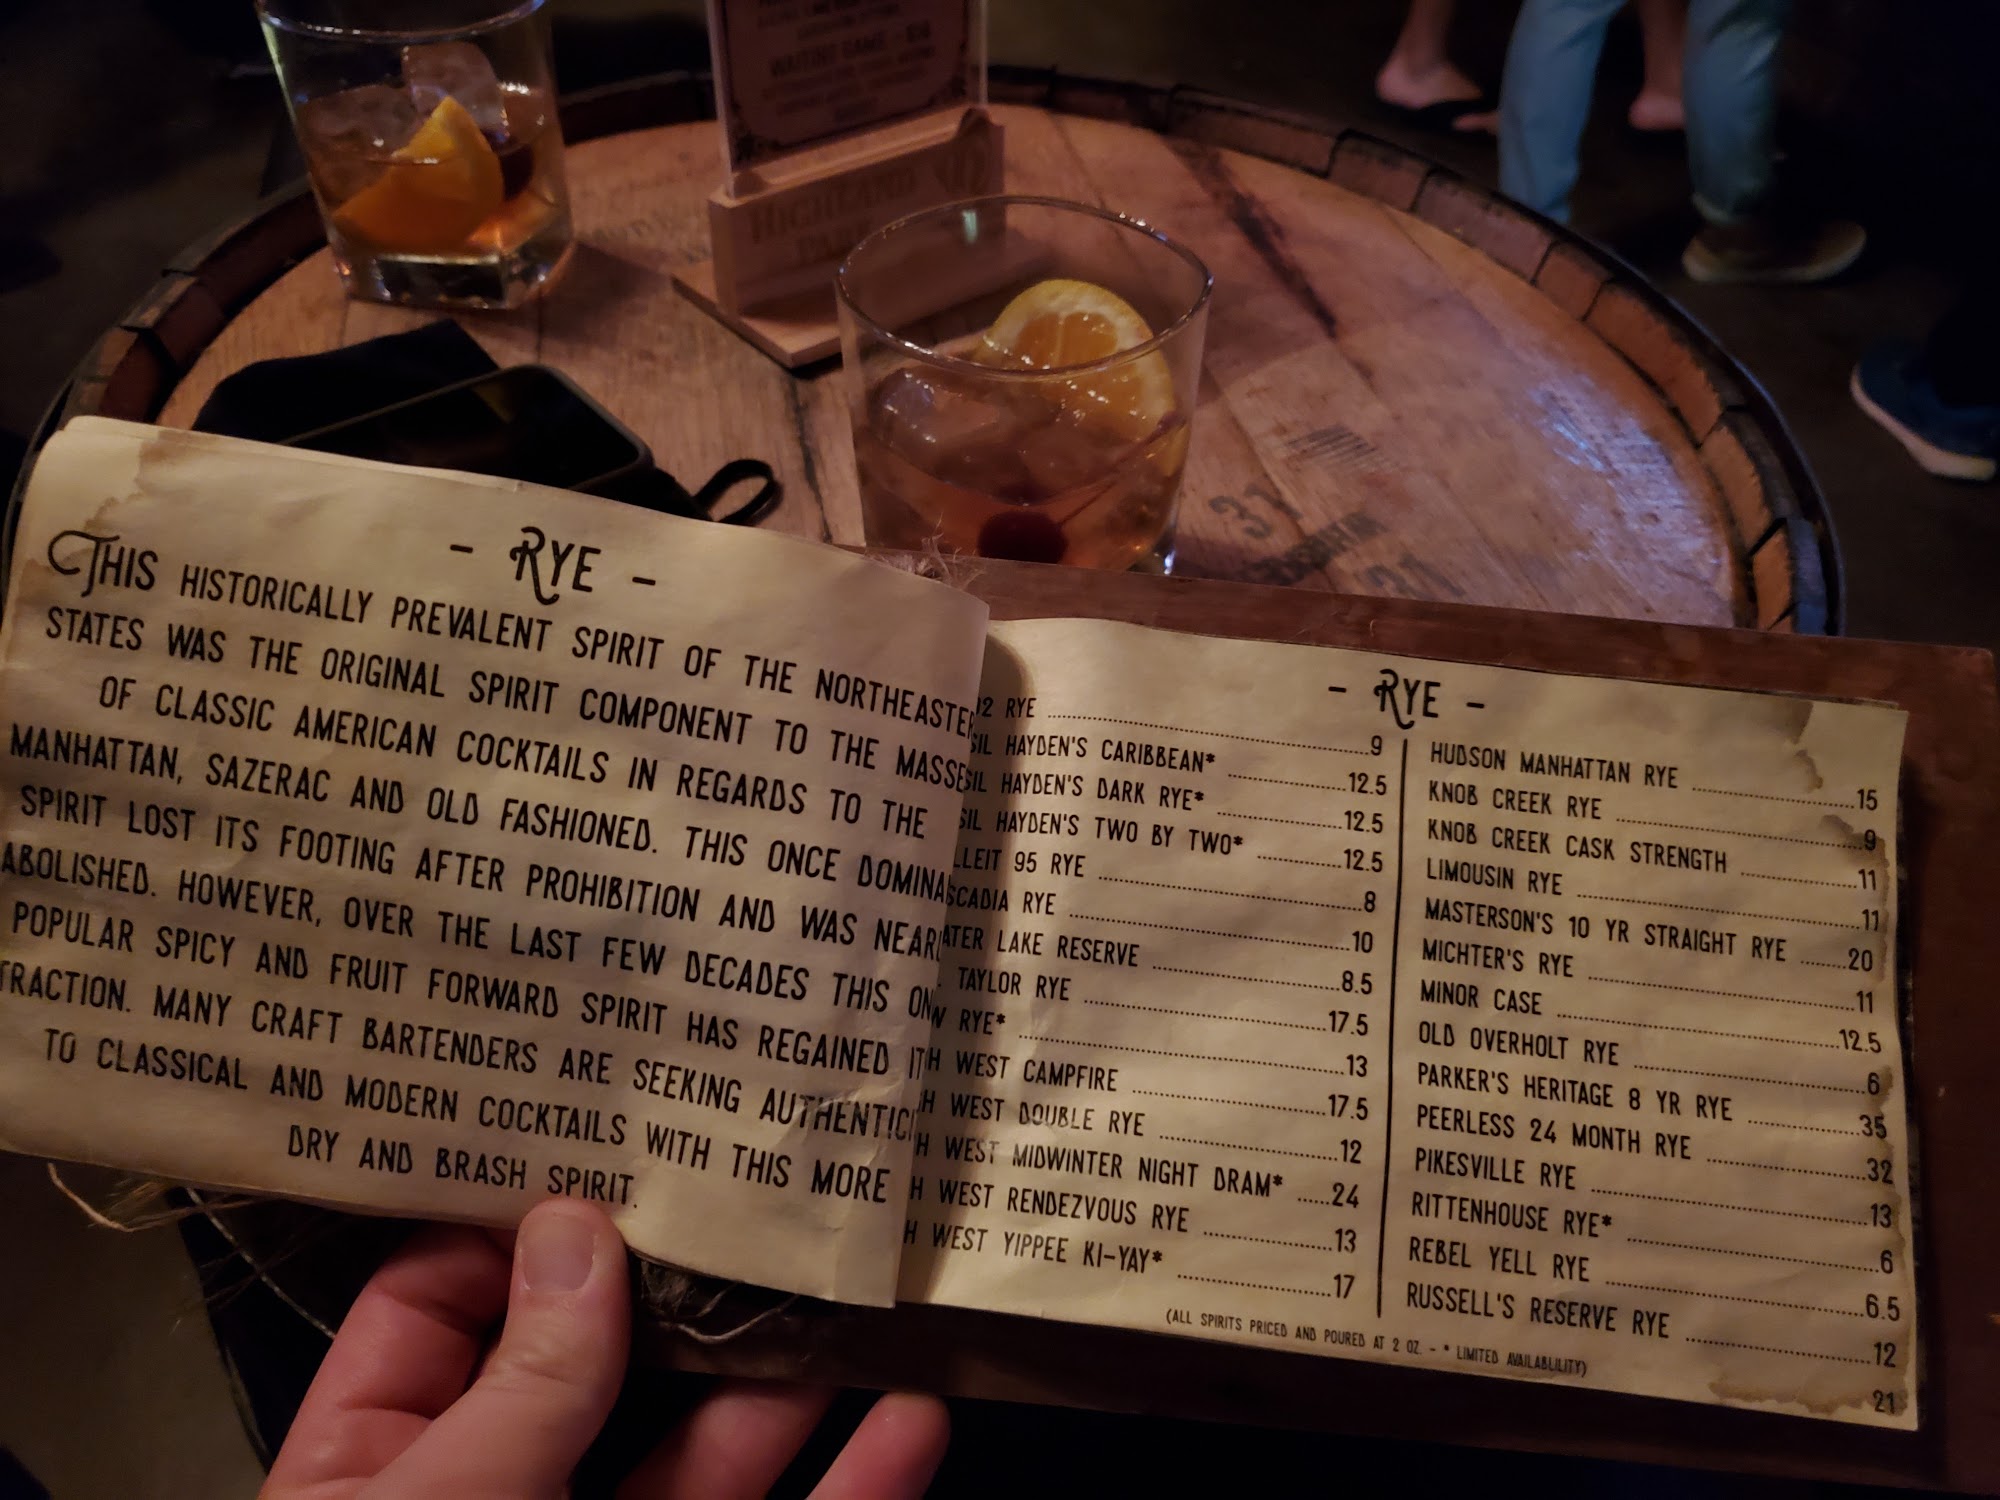 WAITING GAME - $18
HIGHLAND
PARK
31
31
- RYE -
THIS HISTORICALLY PREVALENT SPIRIT OF THE NORTHEASTER
STATES WAS THE ORIGINAL SPIRIT COMPONENT TO THE MASSE
OF CLASSIC AMERICAN COCKTAILS IN REGARDS TO THE
MANHATTAN, SAZERAC AND OLD FASHIONED. THIS ONCE DOMINA
SPIRIT LOST ITS FOOTING AFTER PROHIBITION AND WAS NEAR
ABOLISHED. HOWEVER, OVER THE LAST FEW DECADES THIS ON
POPULAR SPICY AND FRUIT FORWARD SPIRIT HAS REGAINED IT
TRACTION. MANY CRAFT BARTENDERS ARE SEEKING AUTHENTIC
TO CLASSICAL AND MODERN COCKTAILS WITH THIS MORE
DRY AND BRASH SPIRIT.
- RYE -
2 RYE 9
SIL HAYDEN'S CARIBBEAN* 12.5
SIL HAYDEN'S DARK RYE* 12.5
SIL HAYDEN'S TWO BY TWO* 12.5
LLEIT 95 RYE 8
SCADIA RYE 10
ATER LAKE RESERVE 8.5
TAYLOR RYE 17.5
W RYE* 13
H WEST CAMPFIRE 17.5
H WEST DOUBLE RYE 12
H WEST MIDWINTER NIGHT DRAM* 24
H WEST RENDEZVOUS RYE 13
H WEST YIPPEE KI-YAY* 17
HUDSON MANHATTAN RYE 15
KNOB CREEK RYE 9
KNOB CREEK CASK STRENGTH 11
LIMOUSIN RYE 11
MASTERSON'S 10 YR STRAIGHT RYE 20
MICHTER'S RYE 11
MINOR CASE 12.5
OLD OVERHOLT RYE 6
PARKER'S HERITAGE 8 YR RYE 35
PEERLESS 24 MONTH RYE 32
PIKESVILLE RYE 13
RITTENHOUSE RYE* 6
REBEL YELL RYE 6.5
RUSSELL'S RESERVE RYE 12
(ALL SPIRITS PRICED AND POURED AT 2 OZ. - * LIMITED AVAILABLILITY)
21